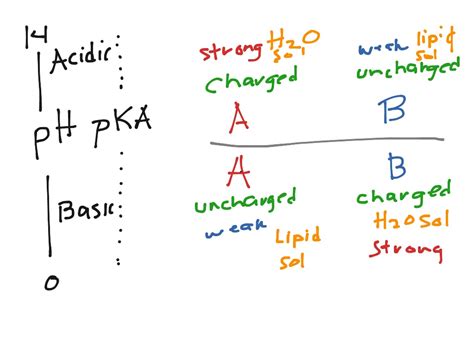 14
Acidic
pH pKA
Basic
0
strong H2O sol
charged
A
weak lipid sol
uncharged
B
A
uncharged
weak Lipid sol
B
charged
H2O Sol
strong